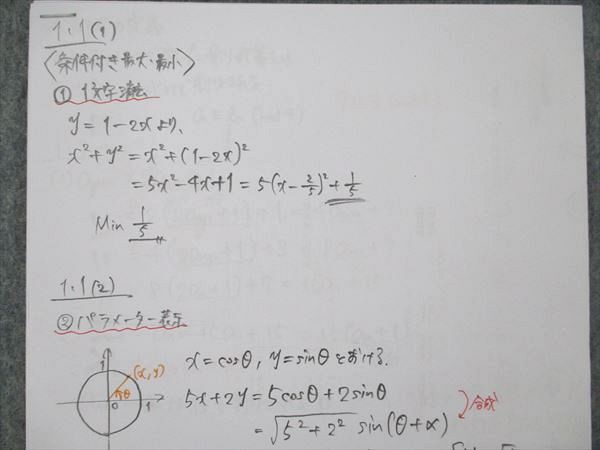 1.1(1)
〈条件付き最大・最小〉
① 1文字消去
y = 1 - 2x より、
x² + y² = x² + (1 - 2x)²
= 5x² - 4x + 1 = 5(x - 2/5)² + 1/5
Min 1/5
1.1(2)
② パラメーター表示
1
(x, y)
θ
0
1
x = cosθ, y = sinθ とおける.
5x + 2y = 5cosθ + 2sinθ
合成
= √(5² + 2²) sin(θ + α)